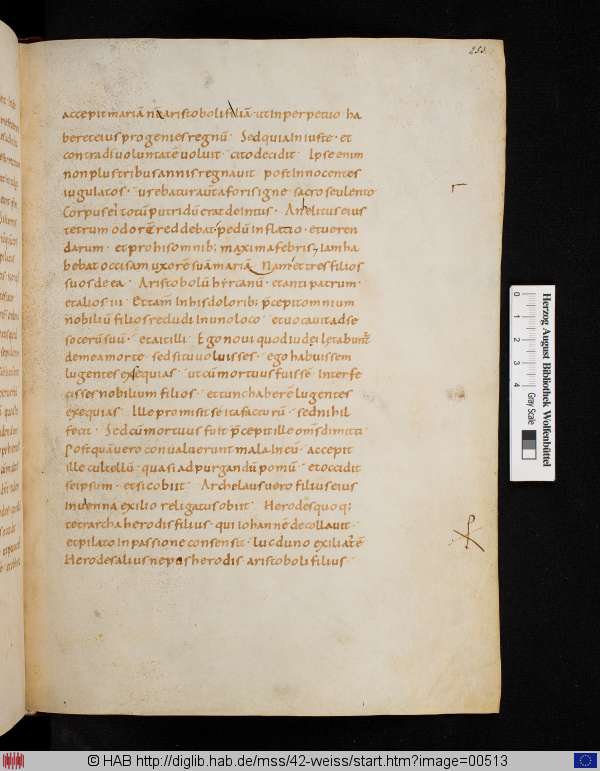 253
accepit mariā neā aristoboli filiā· ut in perpetuo ha
beret eius progenies regnū· Sed quia iniuste· et
contra dī uoluntatē uoluit· cito decidit· Ipse enim
non plus tribus annis regnauit· post innocentes
iugulatos· urebatur aut̄ a foris igne· sacro seu lento
Corpus ei totū putridū erat deintus· Anhelitus eius
tetrum odorē reddebat· pedū inflatio· et ueren
darum· et prohis omnib; maxima febris, iam ha
bebat occisam uxorē suā mariā· Nam et tres filios
suos de ea· Aristobolū hyrcanū· et antipatrum·
et alios iii· Et tam̄ in his dolorib; p̄cepit omnium
nobiliū filios recludi in uno loco· et uocauit ad se
socerū suū· et ait illi· Ego noui quod iudęi lętabunt̄
de mea morte· sed si tu uoluisses· ego habuissem
lugentes exsequias· ut cū mortuus fuissē· interfe
cisses nobilium filios· et tunc haberē lugentes
exequias· Ille promisit se ita facturū· sed nihil
fecit· Sed cū mortuus fuit p̄cepit ille om̄s dimitti·
Postquā uero conualuerunt mala in eū· accepit
ille cultellū· quasi ad purgandū pomū· et occidit
se ipsum· et sic obiit· Archelaus uero filius eius
in uenna exilio religatus obiit· Herodes quoq;
tetrarcha herodis filius· qui iohannē decollauit·
et pilato in passione consensit· lucduno exiliatē
Herodes alius nepos herodis aristoboli filius·
Herzog August Bibliothek Wolfenbüttel
Gray Scale
0 1 2 3 4
© HAB http://diglib.hab.de/mss/42-weiss/start.htm?image=00513